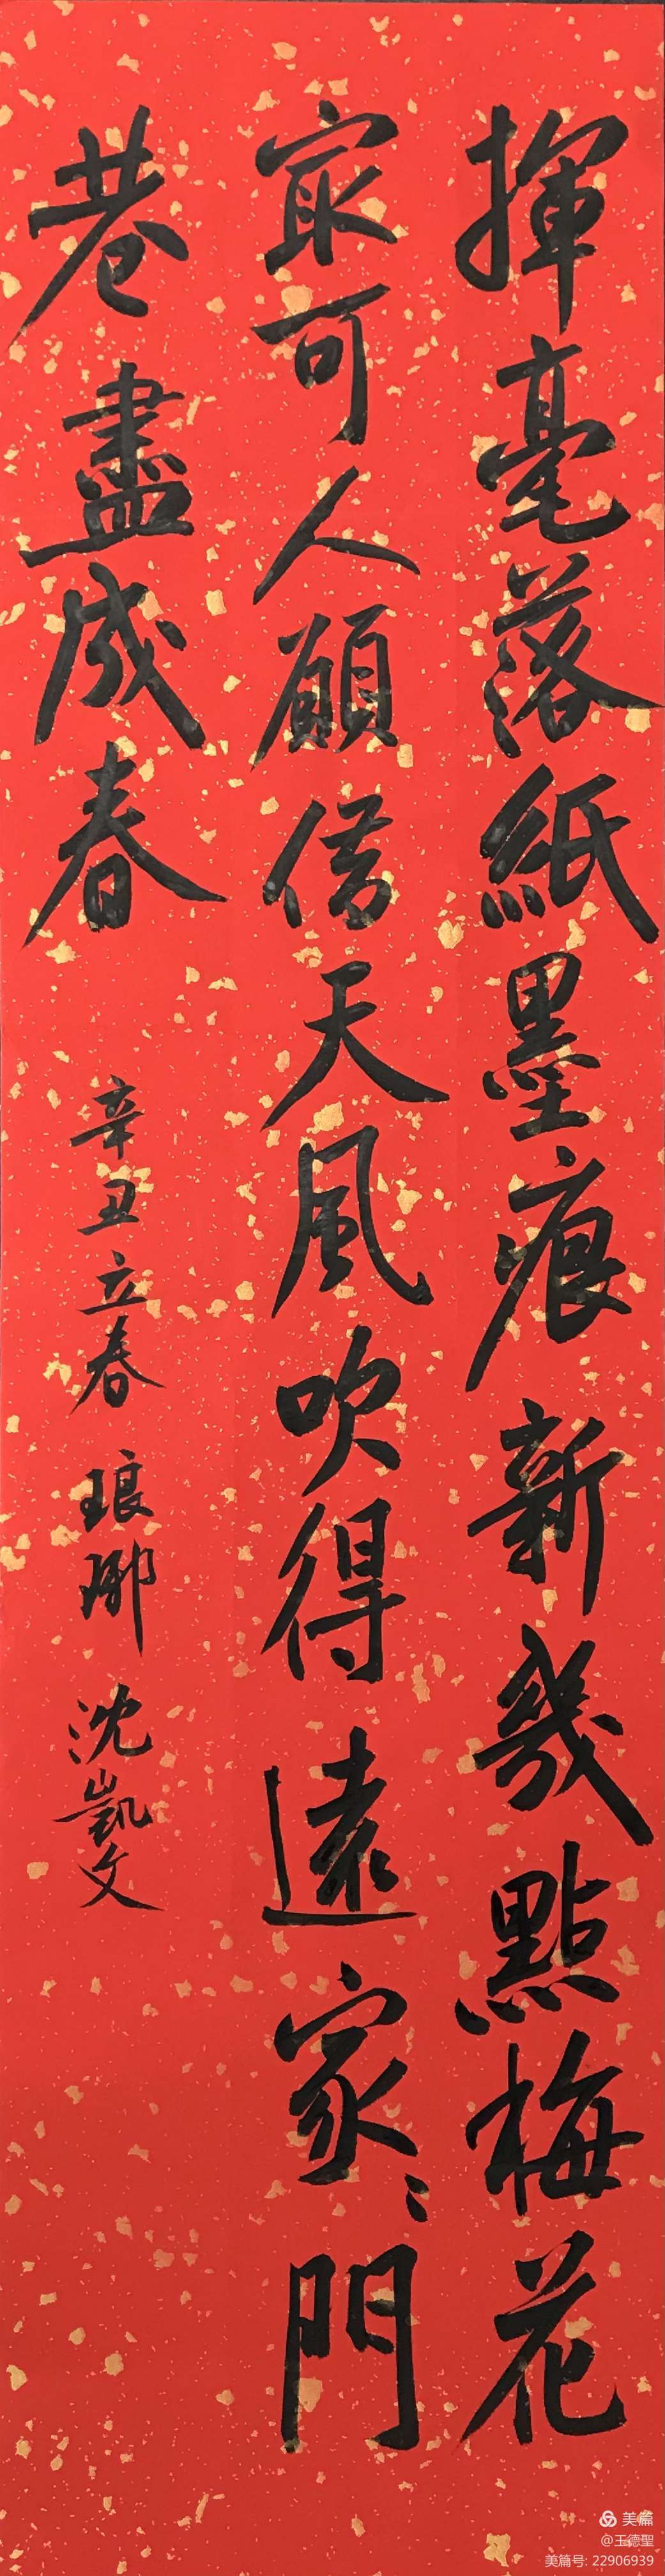 揮毫落紙墨痕新幾點梅花
寂可人願借天風吹得遠家〻門
巷盡成春
辛丑立春 琅琊 沈凱文
美篇
@王德聖
美篇号: 22906939